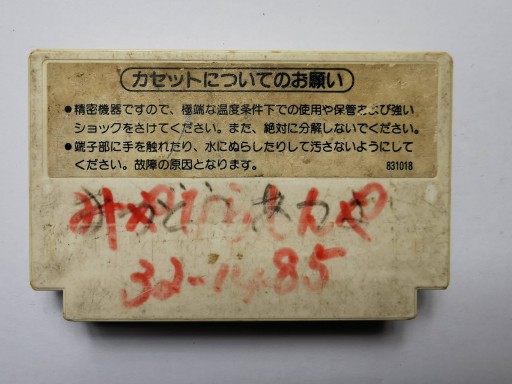 カセットについてのお願い
●精密機器ですので、極端な温度条件下での使用や保管および強い
ショックをさけてください。また、絶対に分解しないでください。
●端子部に手を触れたり、水にぬらしたりして汚さないようにして
ください。故障の原因となります。
831018
32-1485